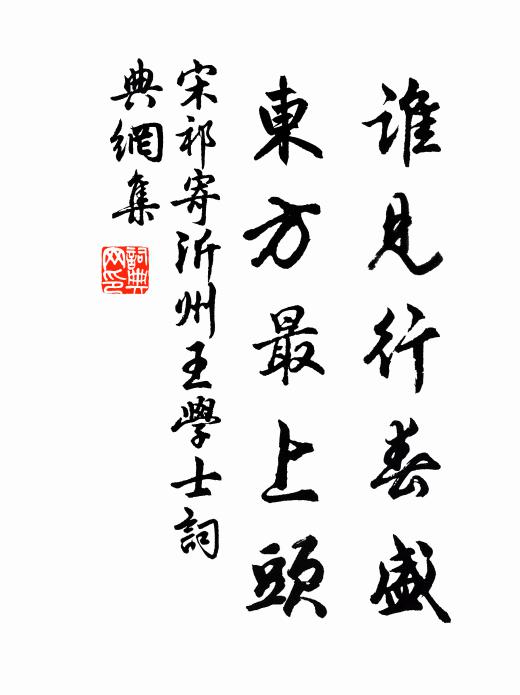 誰見行春盛
東方最上頭
宋祁寄沂州王學士詞
典網集
詞典
网印